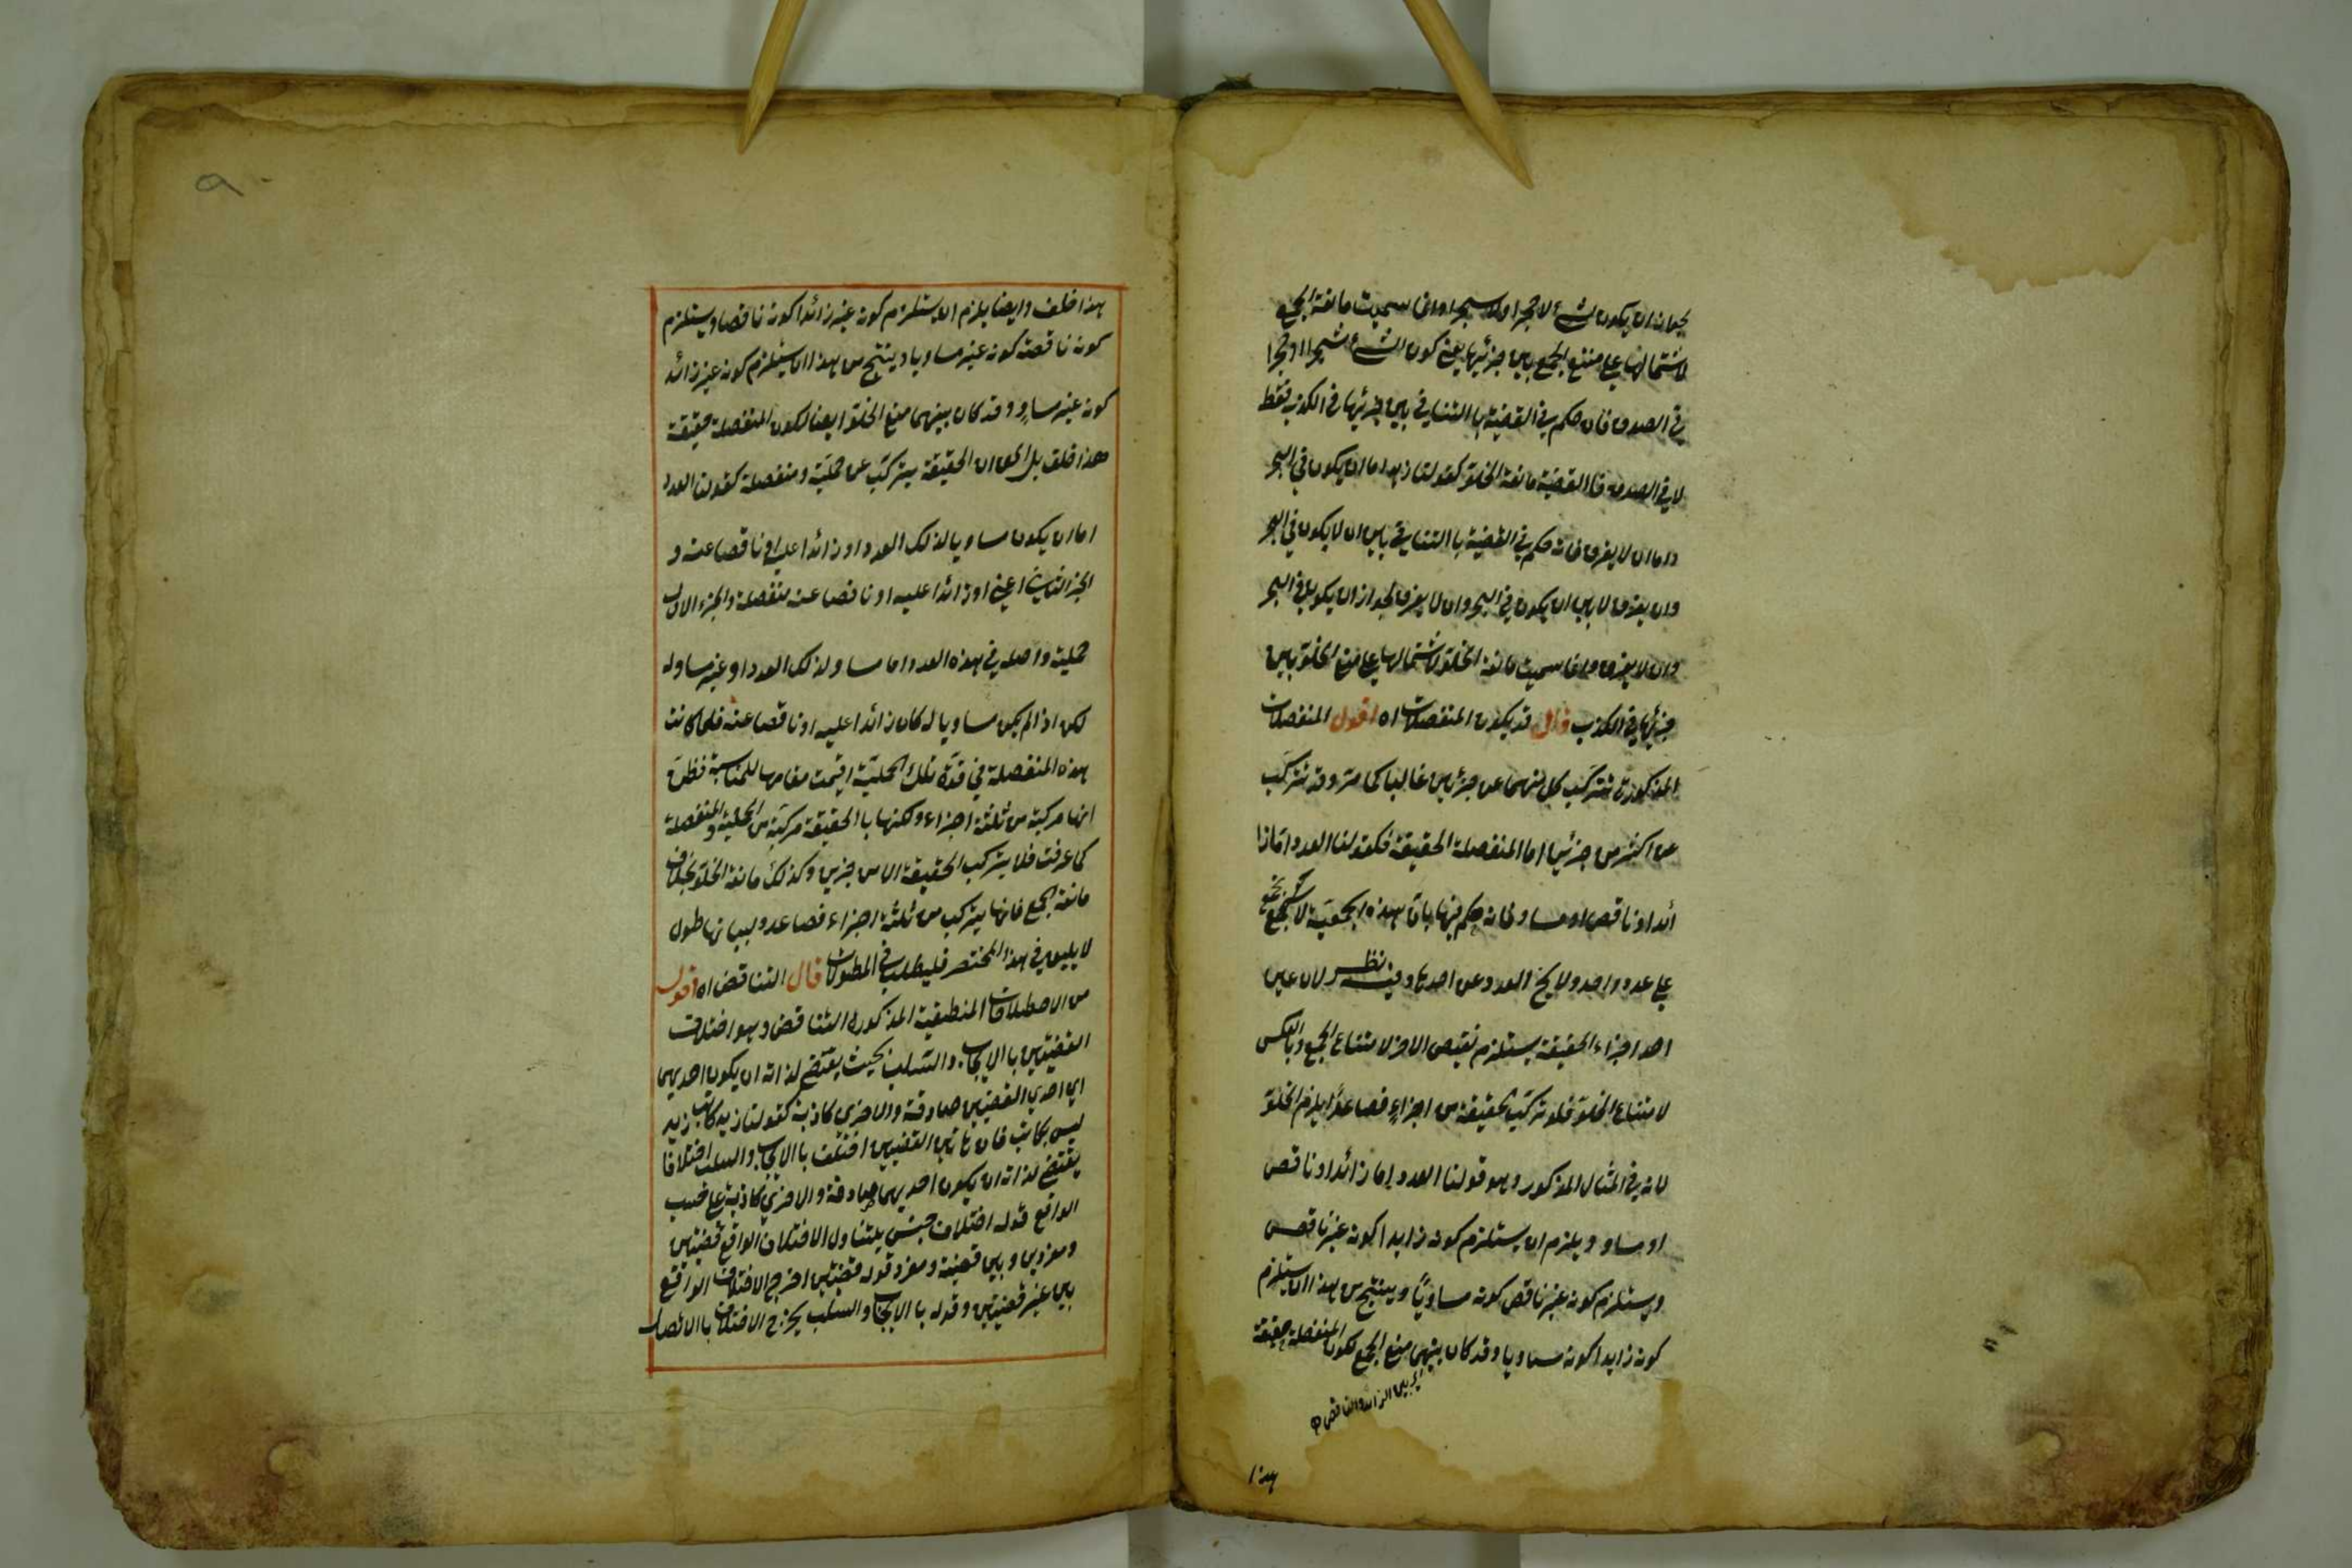 لجواز ان يكون الشئ لا حجرا ولا شجرا وانما سميت مانعة الجمع
لاشتمالها على منع الجمع بين جزئيها يعنى كون الشئ شجرا او حجرا
فى الصدق فان حكم فى القضية بالتنافى بين جزئيها فى الكذب فقط
لا فى الصدق فالقضية مانعة الخلو كقولنا زيد اما ان يكون فى البحر
واما ان لا يغرق فانه حكم فى القضية باالتنافى بين ان لا يكون فى البحر
وان يغرق لا بين ان يكون فى البحر وان لا يغرق لجواز ان يكون فى البحر
وان لا يغرق وانما سميت مانعة الخلو لاشتمالها على منع الخلو بين
جزئيها فى الكذب قال قد يكون المنفصلات اه اقول المنفصلات
المذكورة تتركب كل منهما عن جزئين غالبا كما مر وقد تتركب
عن اكثر من جزئين اما المنفصلة الحقيقة فكقولنا العدد اما زا
ئد او ناقص او مساو فانه حكم فيها بان هذه الجمعية لا تجتمع
على عدد واحد ولا يخ العدد عن احدها وفيه نظر لان عين
احد اجزاء الحقيقة يستلزم نقيض الاخر لامتناع الجمع وبالعكس
لامتناع الخلو فلو تركب الحقيقة من اجزاء فصاعدا يلزم الخلو
لانه فى المثال المذكور وهو قولنا العدد اما زائد او ناقص
او مساو ويلزم ان يستلزم كونه زايدا كونه غير ناقص
ويستلزم كونه غير ناقص كونه مساويا وينتج من هذا ان يستلزم
كونه زايدا كونه مساويا وقد كان بينهما منع الجمع لكون المنفصلة حقيقة
اى بين الزائد والناقص
هذا
هذا خلف وايضا يلزم ان يستلزم كونه غير زائدا كونه ناقصا ويستلزم
كونه ناقصة كونه غير مساويا وينتج من هذا ان يستلزم كونه غير زائد
كونه غير مساو وقد كان بينهما منع الخلو ايضا لكون المنفصلة حقيقة
هذا خلف بل الحق ان الحقيقة يتركب عن حملية ومنفصلة كقولنا العدد
اما ان يكون مساويا لذلك العدد او زائدا عليه او ناقصا عنه و
الجزء الثانى اعنى او زائدا عليه او ناقصا عنه منفصلة والجزء الاول
حملية واصله فى هذه العدد اما مساو لذلك العدد او غير مساو له
لكن اذا لم يكن مساويا له كان زائدا عليه او ناقصا عنه فلما كانت
هذه المنفصلة فى قوة تلك الحملية اقيمت مقامها للمناسبة فظن
انها مركبة من ثلثة اجزاء ولكنها باالحقيقة مركبة من الحملية والمنفصلة
كما عرفت فلا يتركب الحقيقة الا من جزين وكذلك مانعة الخلو بخلاف
مانعة الجمع فانها يتركب من ثلثة اجزاء فصاعد ولبيانها طول
لا يليق فى هذا المختصر فليطلب فى المطولات قال التناقض اه اقول
من الاصطلاحات المنطقية المذكورة التناقض وهو اختلاف
القضيتين باالايجاب والسلب بحيث يقتضى لذاته ان يكون احديهما
اى احدى القضيتين صادقة والاخرى كاذبة كقولنا زيد كاتب زيد
ليس بكاتب فان هاتين القضيتين اختلفت باالايجاب والسلب اختلافا
يقتضى لذاته ان يكون احديهما صادقة والاخرى كاذبة على حسب
الواقع قوله اختلاف جنس يتناول الاختلاف الواقع قضيتين
ومفردين وبين قضية ومفرد قوله قضيتين اخرج الاختلاف الواقع
بين غير قضيتين وقوله باالايجاب والسلب يخرج الاختلاف باالاتصال